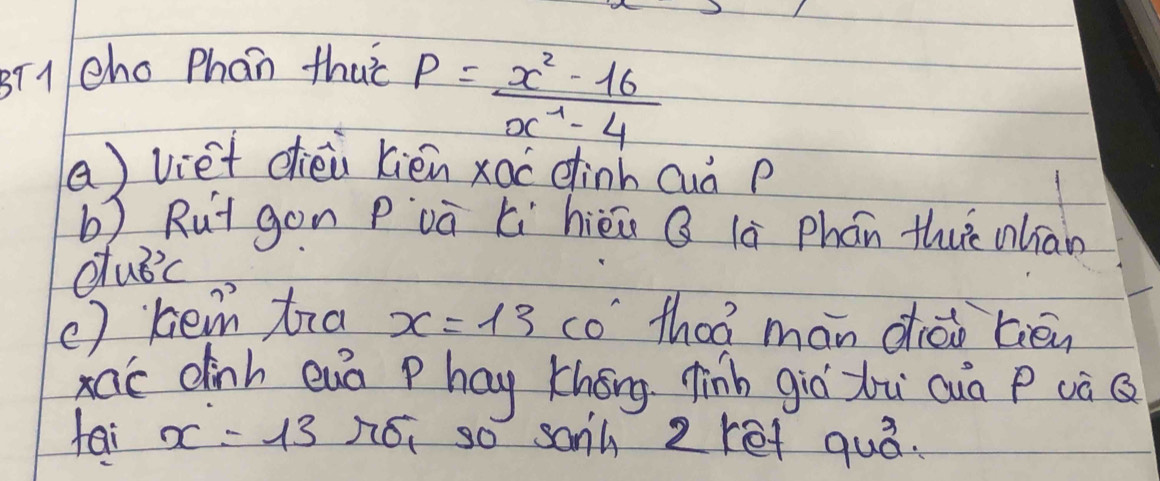 BT1 Cho Phân thức P = \frac{x² - 16}{x⁻¹ - 4}
a) Viết điều kiện xác định của P
b) Rút gọn P và kí hiệu Q là phân thức nhận
được
c) Kiểm tra x = 13 có thoả mãn điều kiện
xác định của P hay không. Tính giá trị của P và Q
tại x = 13 rồi so sánh 2 kết quả.